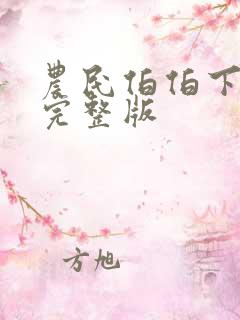 農民伯伯下
完整版
方旭